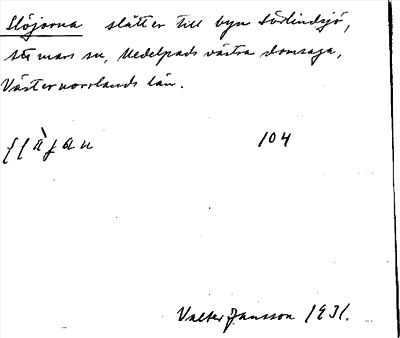 Slöjorna slåtter till byn Sörlindsjö,
Stu mars sn, Medelpads västra domsaga,
Västernorrlands län.
104
Valter Jansson 1931.